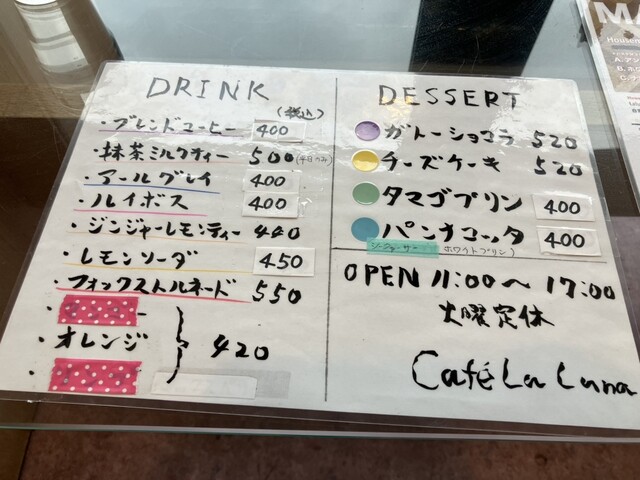 DRINK
(税込)
・ブレンドコーヒー 400
・抹茶ミルクティー 500(平日のみ)
・アールグレイ 400
・ルイボス 400
・ジンジャーレモンティー 440
・レモンソーダ 450
・フォックストルネード 550
・オレンジ 420
DESSERT
ガトーショコラ 520
チーズケーキ 520
タマゴプリン 400
パンナコッタ 400
シークヮーサー ホワイトプリン)
OPEN 11:00〜17:00
火曜定休
Café La Luna